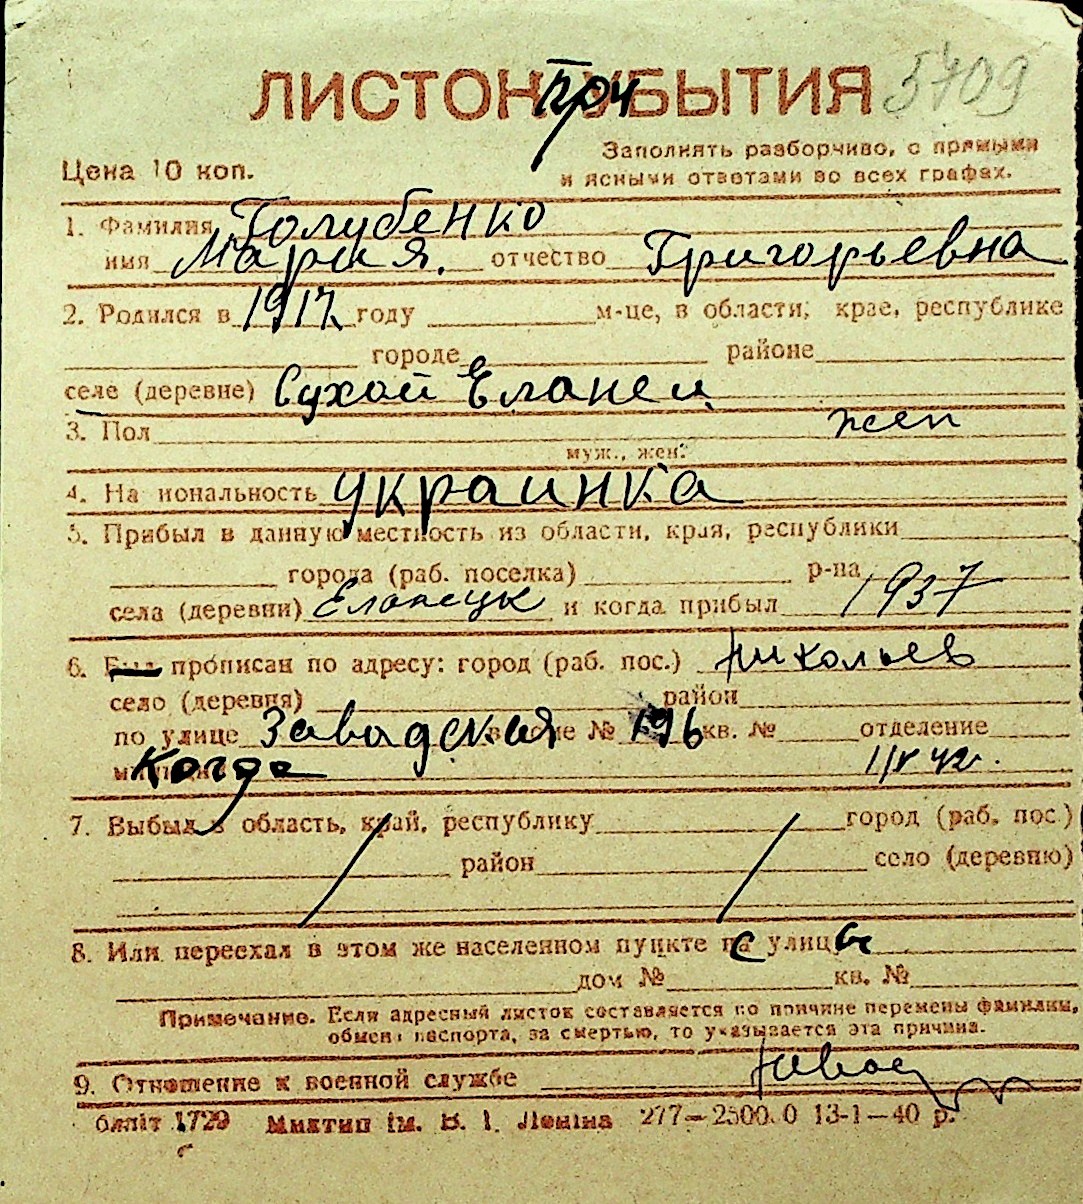 ЛИСТОК При УБЫТИЯ 5709
Заполнять разборчиво, с прямыми
Цена 10 коп.
и ясными ответами во всех графах.
1. Фамилия Голубенко
имя Мария. отчество Григорьевна
2. Родился в 1917 году м-це, в области, крае, республике
городе районе
селе (деревне) Сухой Еланец
3. Пол жен
муж., жен.
4. Национальность украинка
5. Прибыл в данную местность из области, края, республики
города (раб. поселка) р-на
села (деревни) Еланецк и когда прибыл 1937
6. Был прописан по адресу: город (раб. пос.) Николаев
село (деревня) район
по улице Заводская в доме № 196 кв. № отделение
милиции Когда 1/V 42.
7. Выбыл в область, край, республику город (раб. пос.)
район село (деревню)
8. Или переехал в этом же населенном пункте с улицы
дом № кв. №
Примечание. Если адресный листок составляется по причине перемены фамилии,
обмена паспорта, за смертью, то указывается эта причина.
9. Отношение к военной службе
бланіт 1729 Миктип ім. В. І. Леніна 277—2500.0 13-1—40 р.